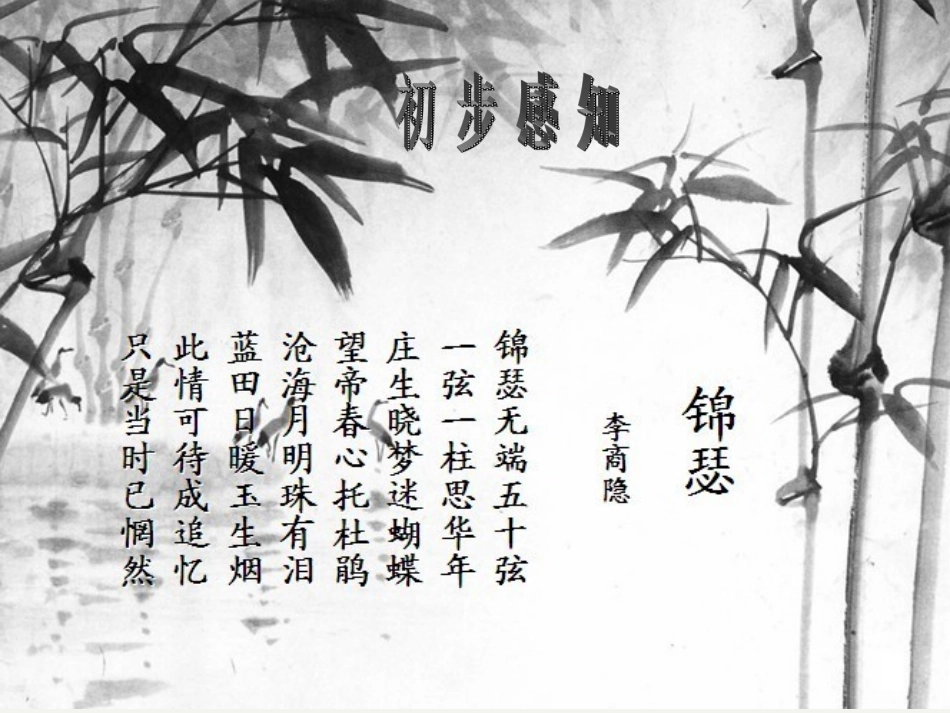 初步感知
锦瑟
李商隐
锦瑟无端五十弦
一弦一柱思华年
庄生晓梦迷蝴蝶
望帝春心托杜鹃
沧海月明珠有泪
蓝田日暖玉生烟
此情可待成追忆
只是当时已惘然